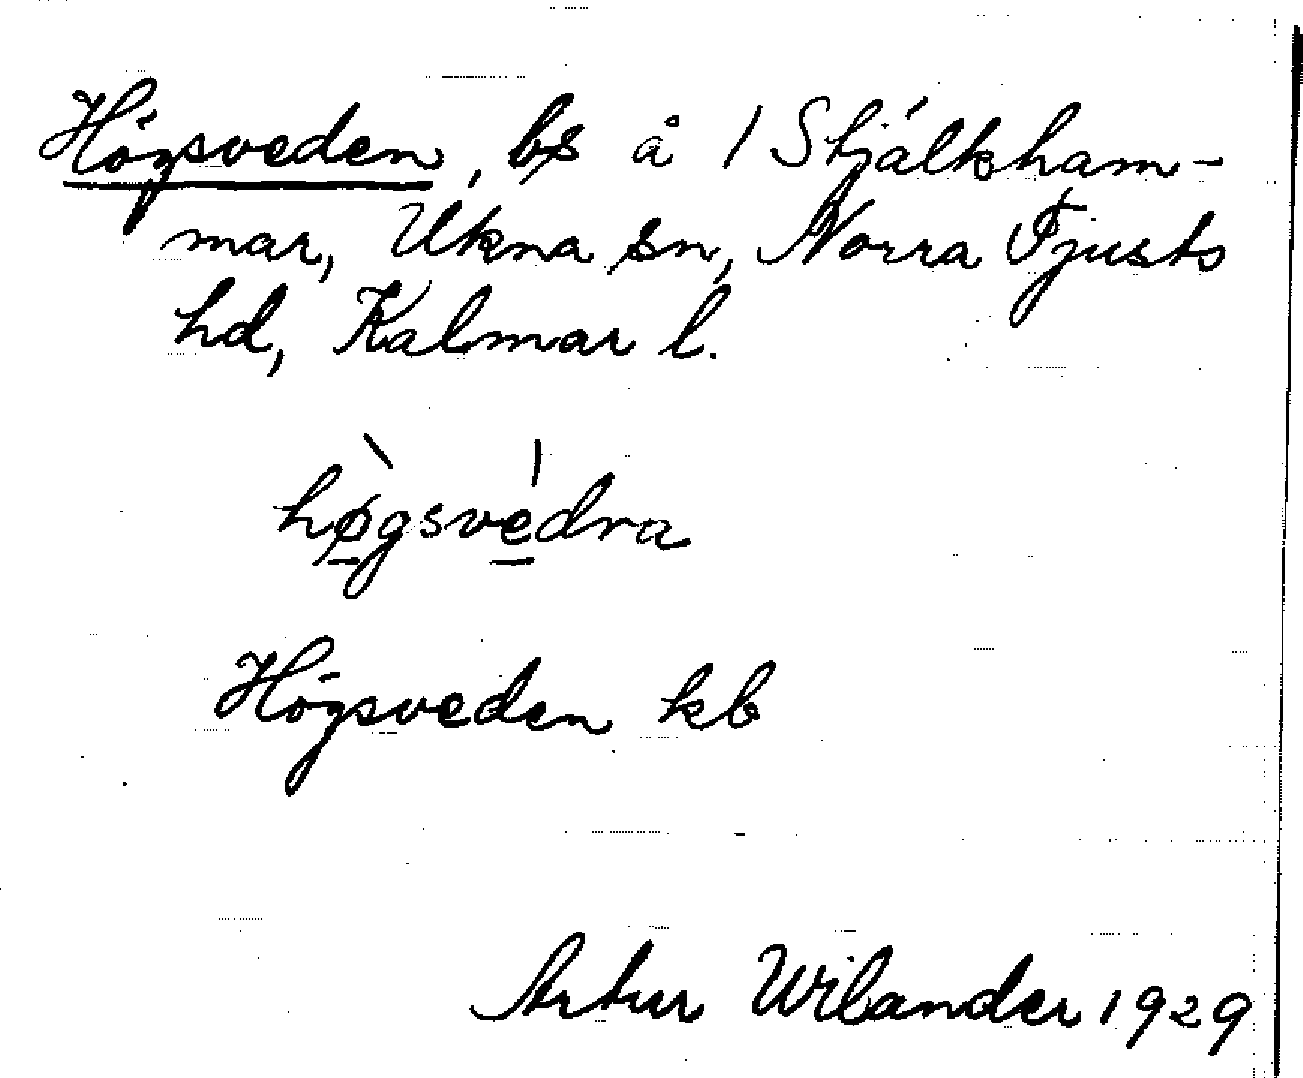 Högsveden, bs å 1 Stjälkham-
mar, Ukna sn, Norra Tjusts
hd, Kalmar l.
hø̀gsvédra
Högsveden kb
Artur Wilander 1929